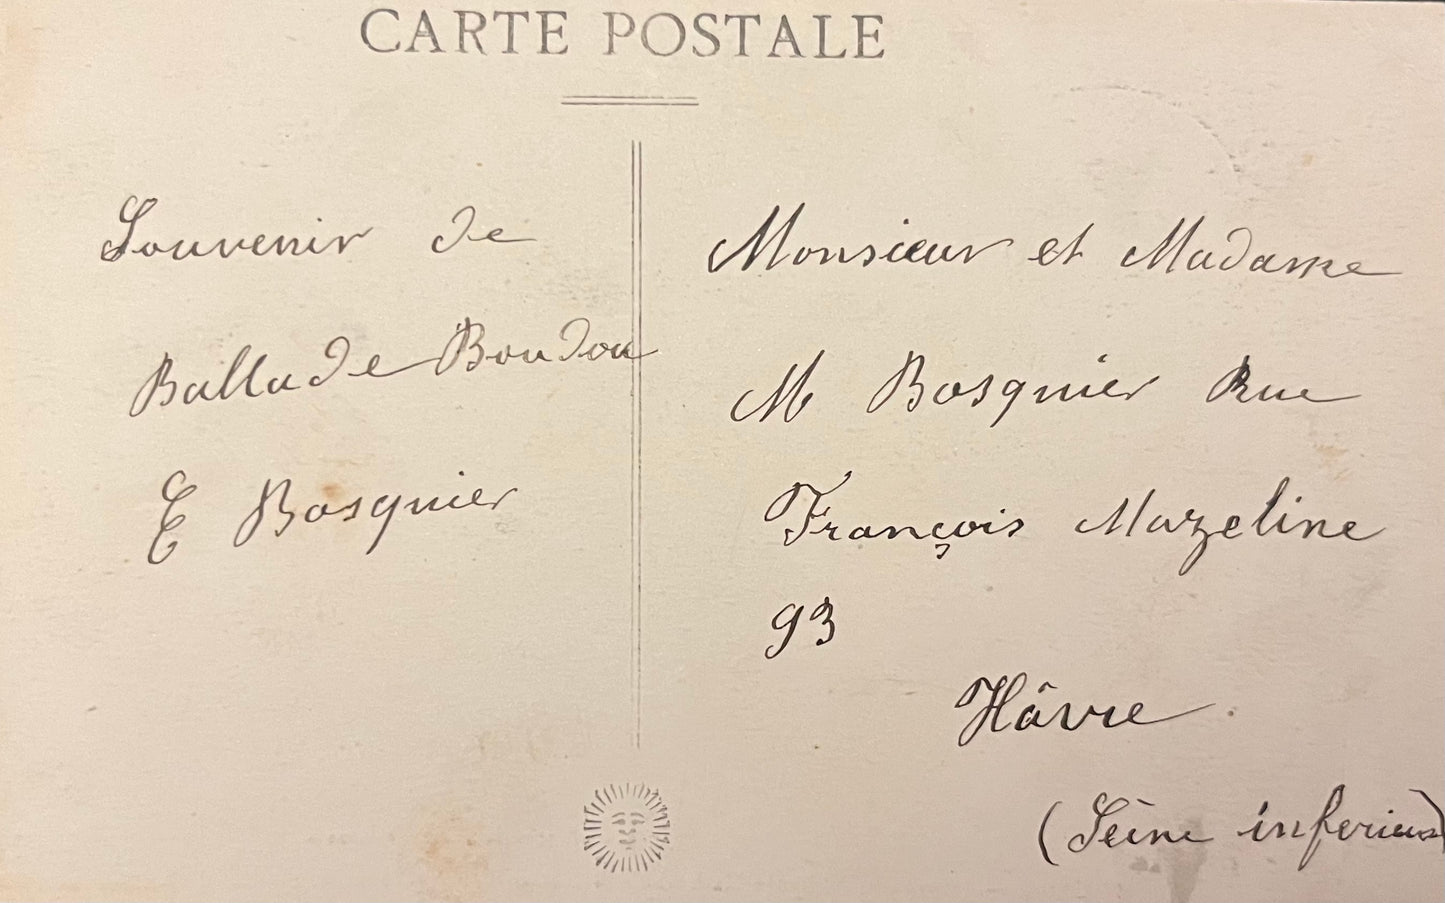 CARTE POSTALE
Souvenir de
Ballade Boudou
E Bosquier
Monsieur et Madame
M Bosquier Rue
François Mazeline
93
Hâvre
(Seine inferieur)